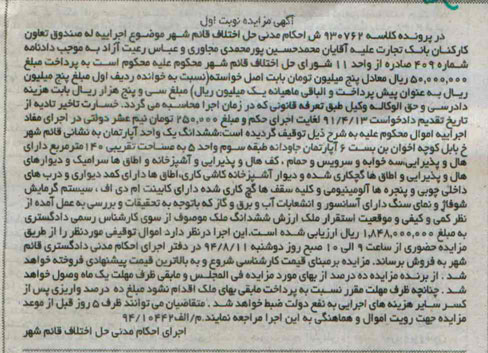 آگهی مزایده نوبت اول
در پرونده کلاسه ۹۳۰۷۶۲ ش احکام مدنی حل اختلاف قائم شهر موضوع اجراییه له صندوق تعاون
کارکنان بانک تجارت علیه آقایان محمدحسین پورمحمدی مجاوری و عباس رعیت آزاد به موجب دادنامه
شماره ۴۰۹ صادره از واحد ۱۱ شورای حل اختلاف قائم شهر محکوم علیه محکوم است به پرداخت مبلغ
۵۰,۰۰۰,۰۰۰ ریال معادل پنج میلیون تومان بابت اصل خواسته(نسبت به خوانده ردیف اول مبلغ پنج میلیون
ریال به عنوان پیش پرداخت و الباقی ماهیانه یک میلیون ریال) مبلغ سی و پنج هزار ریال بابت هزینه
دادرسی و حق الوکاله وکیل طبق تعرفه قانونی که در زمان اجرا محاسبه می گردد. خسارت تاخیر تادیه از
تاریخ تقدیم دادخواست ۹۱/۴/۱۳ لغایت اجرای حکم و مبلغ ۲۵۰,۰۰۰ تومان نیم عشر دولتی در اجرای مفاد
اجراییه اموال محکوم علیه به شرح ذیل توقیف گردیده است:ششدانگ یک واحد آپارتمان به نشانی قائم شهر
خ بابل کوچه اخوان بن بست ۶ آپارتمان جاودانه طبقه سوم واحد ۵ به مساحت تقریبی ۱۴۰ مترمربع دارای
هال و پذیرایی،سه خوابه و سرویس و حمام ، کف هال و پذیرایی و آشپزخانه و اطاق ها سرامیک و دیوارهای
هال و پذیرایی و اطاق ها گچکاری شده و دیوار آشپزخانه کاشی کاری،اطاق ها دارای کمد دیواری و درب های
داخلی چوبی و پنجره ها آلومینیومی و کلیه سقف ها گچ کاری شده دارای کابینت ام دی اف ، سیستم گرمایش
شوفاژ و نمای سنگ دارای آسانسور و انشعابات آب و برق و گاز که باتوجه به تحقیقات و بررسی به عمل آمده از
نظر کمی و کیفی و موقعیت استقرار ملک ارزش ششدانگ ملک موصوف از سوی کارشناس رسمی دادگستری
به مبلغ ۱,۸۴۸,۰۰۰,۰۰۰ ریال ارزیابی شده است.این اجرا درنظر دارد اموال توقیفی موردنظر را از طریق
مزایده حضوری از ساعت ۹ الی ۱۰ صبح روز دوشنبه ۹۴/۸/۱۱ در دفتر اجرای احکام مدنی دادگستری قائم
شهر به فروش برساند. مزایده برمبنای قیمت کارشناسی شروع و به بالاترین قیمت پیشنهادی فروخته خواهد
شد . از برنده مزایده ده درصد از بهای مورد مزایده فی المجلس و مابقی ظرف مهلت یک ماه وصول خواهد
شد. چنانچه ظرف مهلت مقرر نسبت به پرداخت مابقی بهای ملک اقدام نشود مبلغ ده درصد واریزی پس از
کسر سایر هزینه های اجرایی به نفع دولت ضبط خواهد شد . متقاضیان می توانند ظرف ۵ روز قبل از موعد
مزایده جهت رویت اموال و هماهنگی به این اجرا مراجعه نمایند.م/الف۹۴/۱۰۴۴۲
اجرای احکام مدنی حل اختلاف قائم شهر